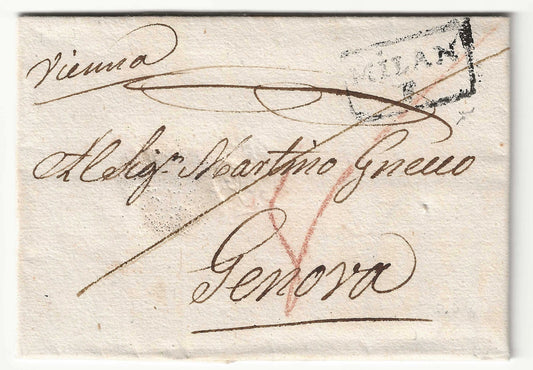 Vienna
MILAN
Al Sig.r Martino Gnecco
Genova